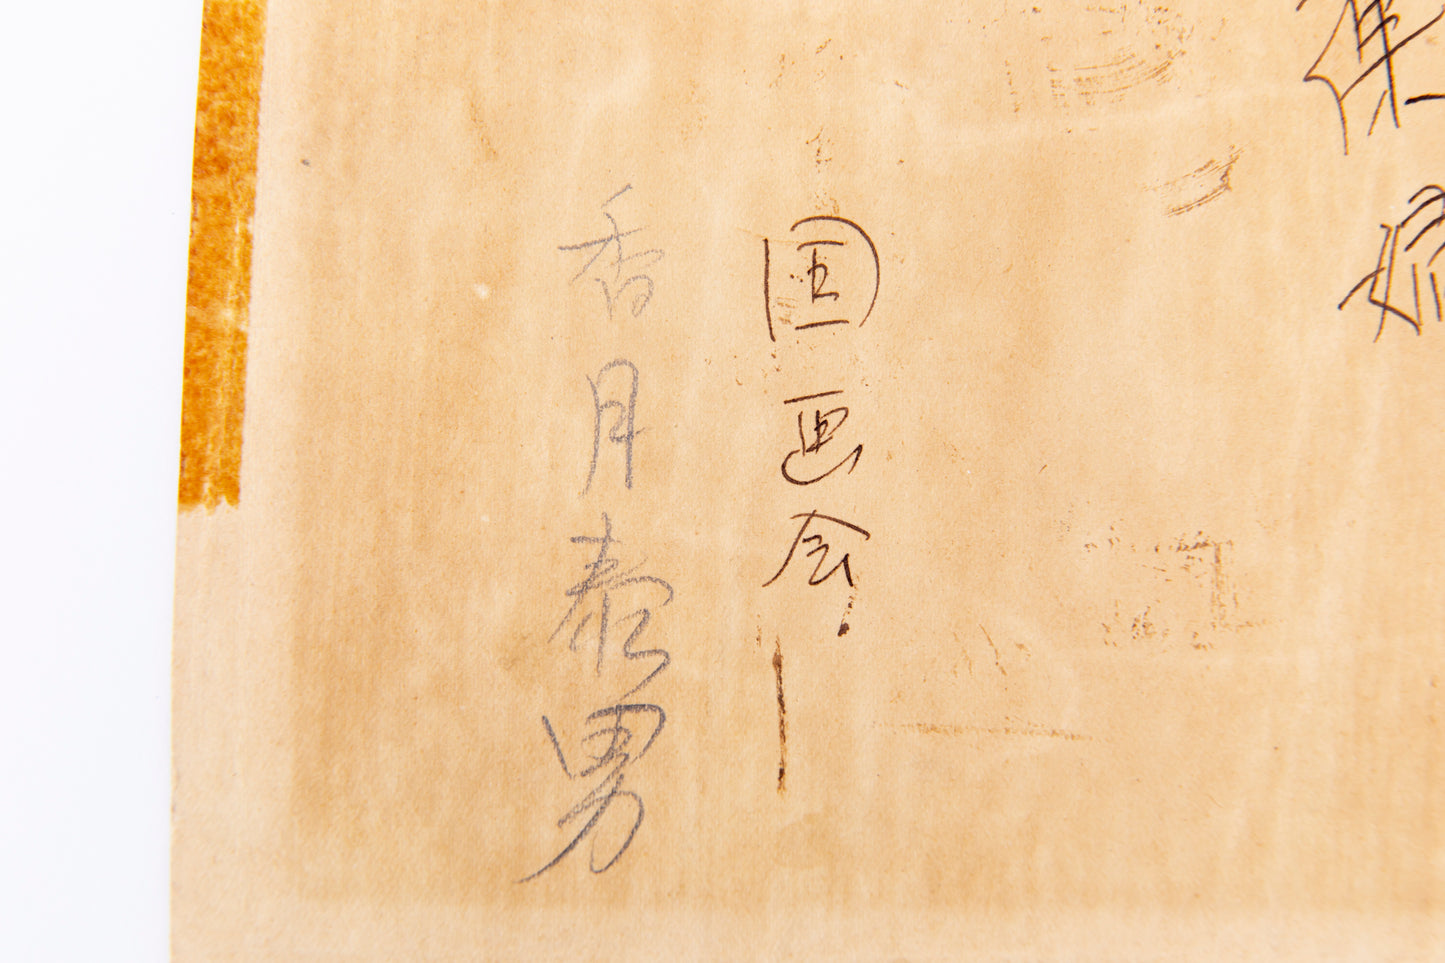 国画会
香月泰男